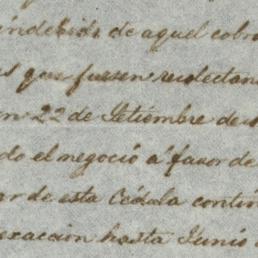 indebido de aquel cobro
que fuesen recolectan
en 22 de Setiembre de
do el negocio á favor de
ar de esta Cédula contin
exaccion hasta Junio